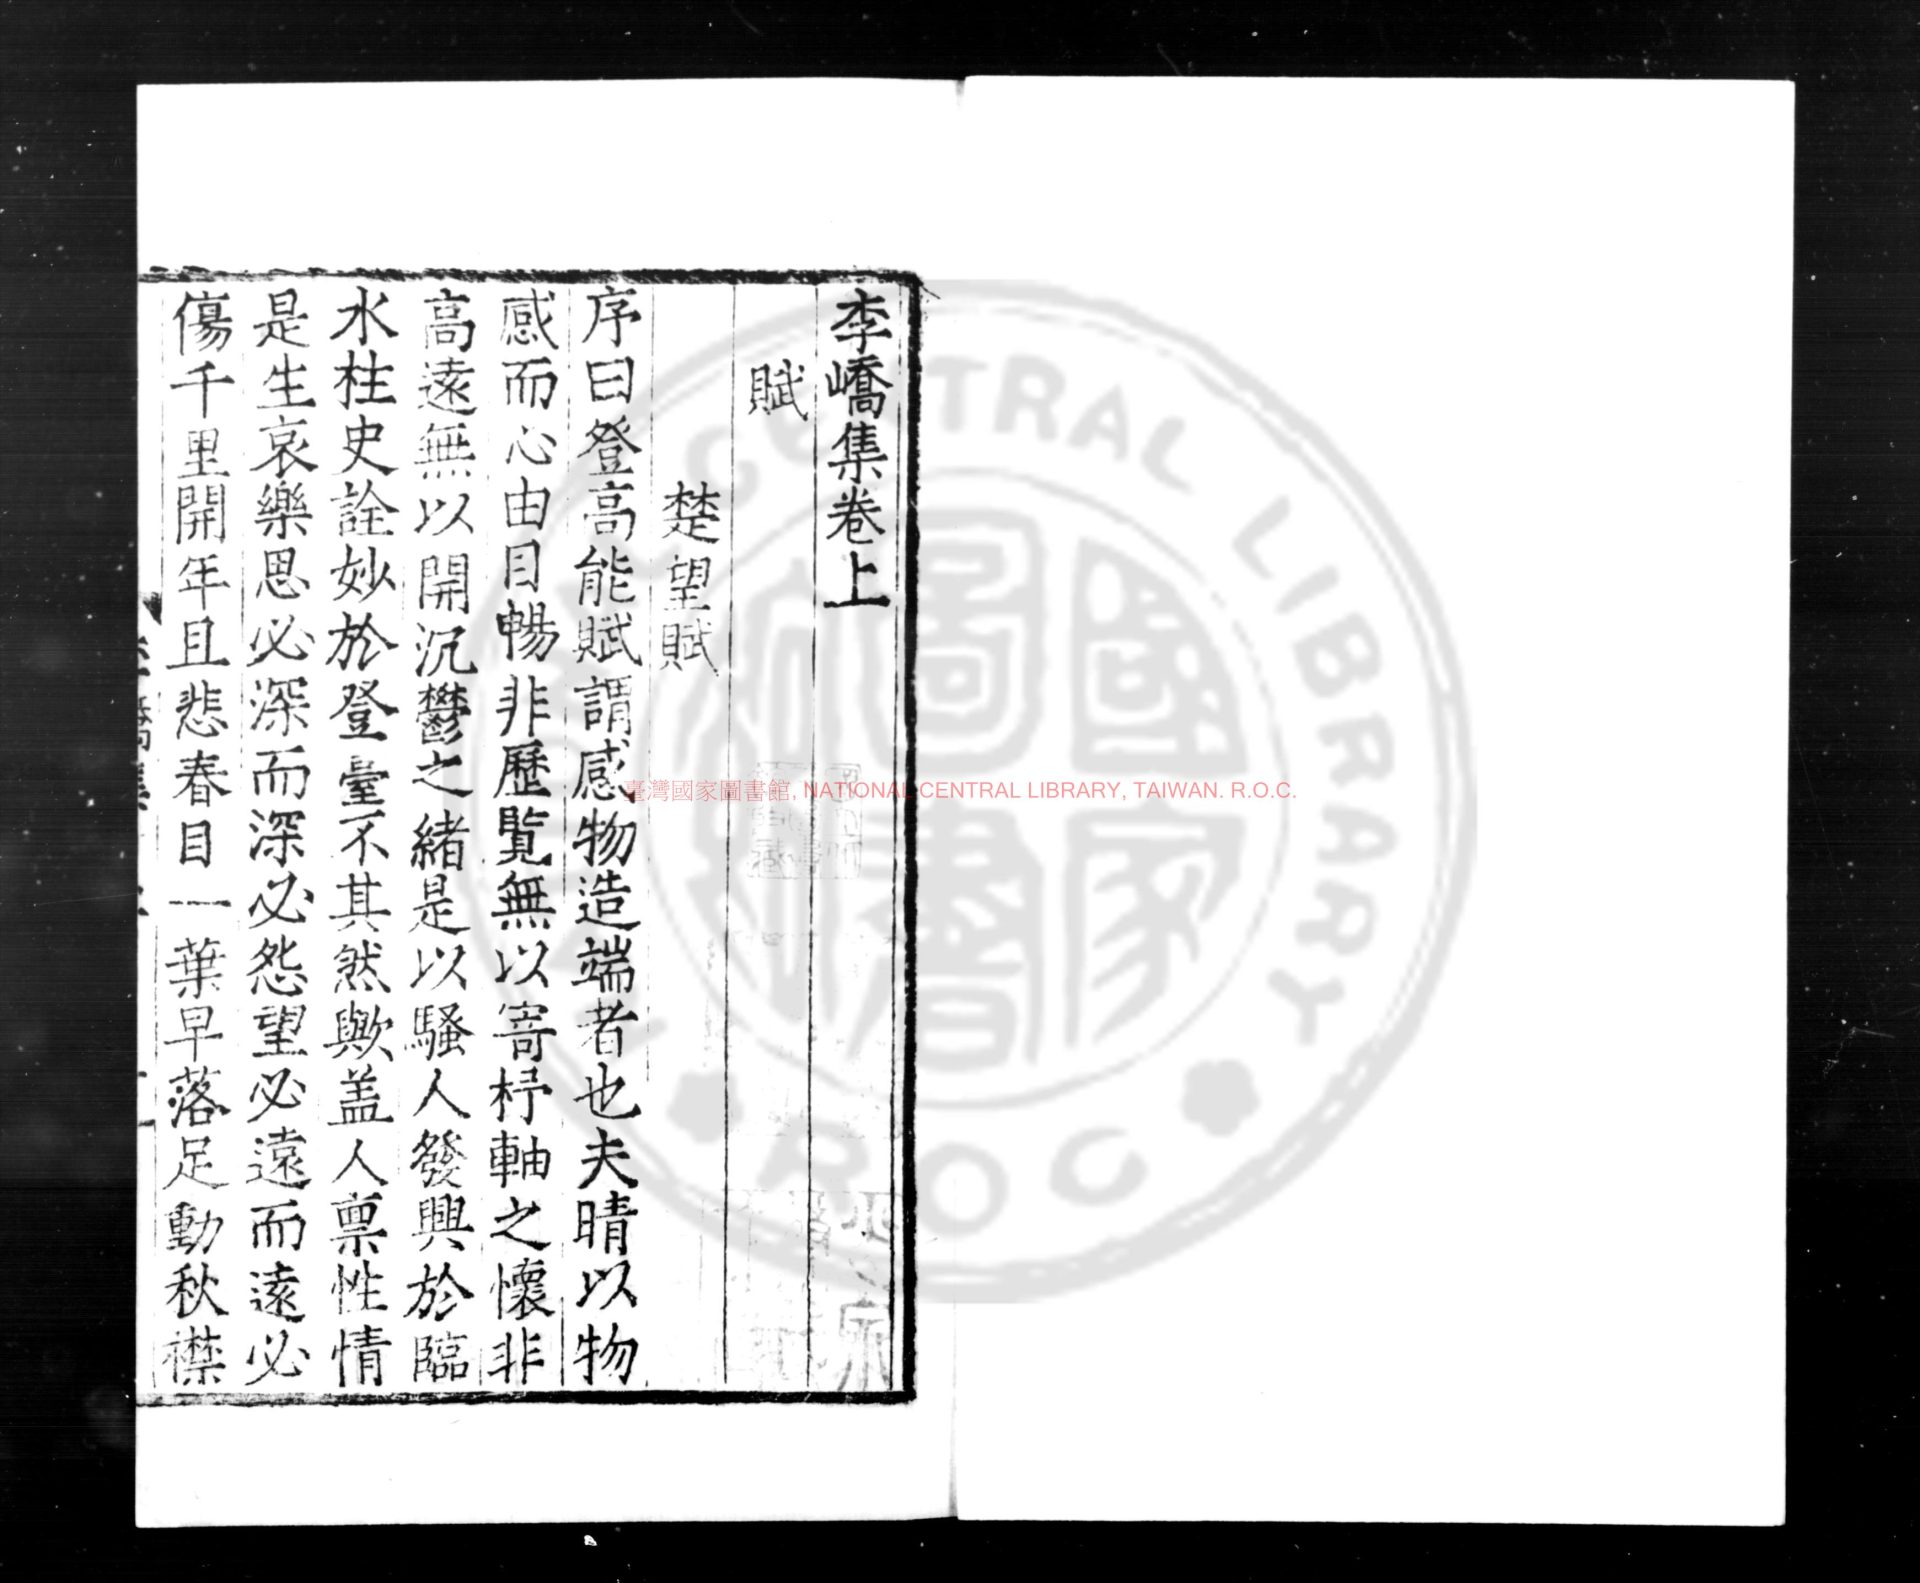 李嶠集卷上
賦
楚望賦
序曰登高能賦謂感物造端者也夫晴以物
感而心由目暢非歷覽無以寄杼軸之懷非
高遠無以開沉鬱之緒是以騷人發興於臨
水柱史詮妙於登臺不其然歟盖人禀性情
是生哀樂思必深而深必怨望必遠而遠必
傷千里開年且悲春目一葉早落足動秋襟
臺灣國家圖書館, NATIONAL CENTRAL LIBRARY, TAIWAN. R.O.C.
CENTRAL LIBRARY
ROC
國家圖書